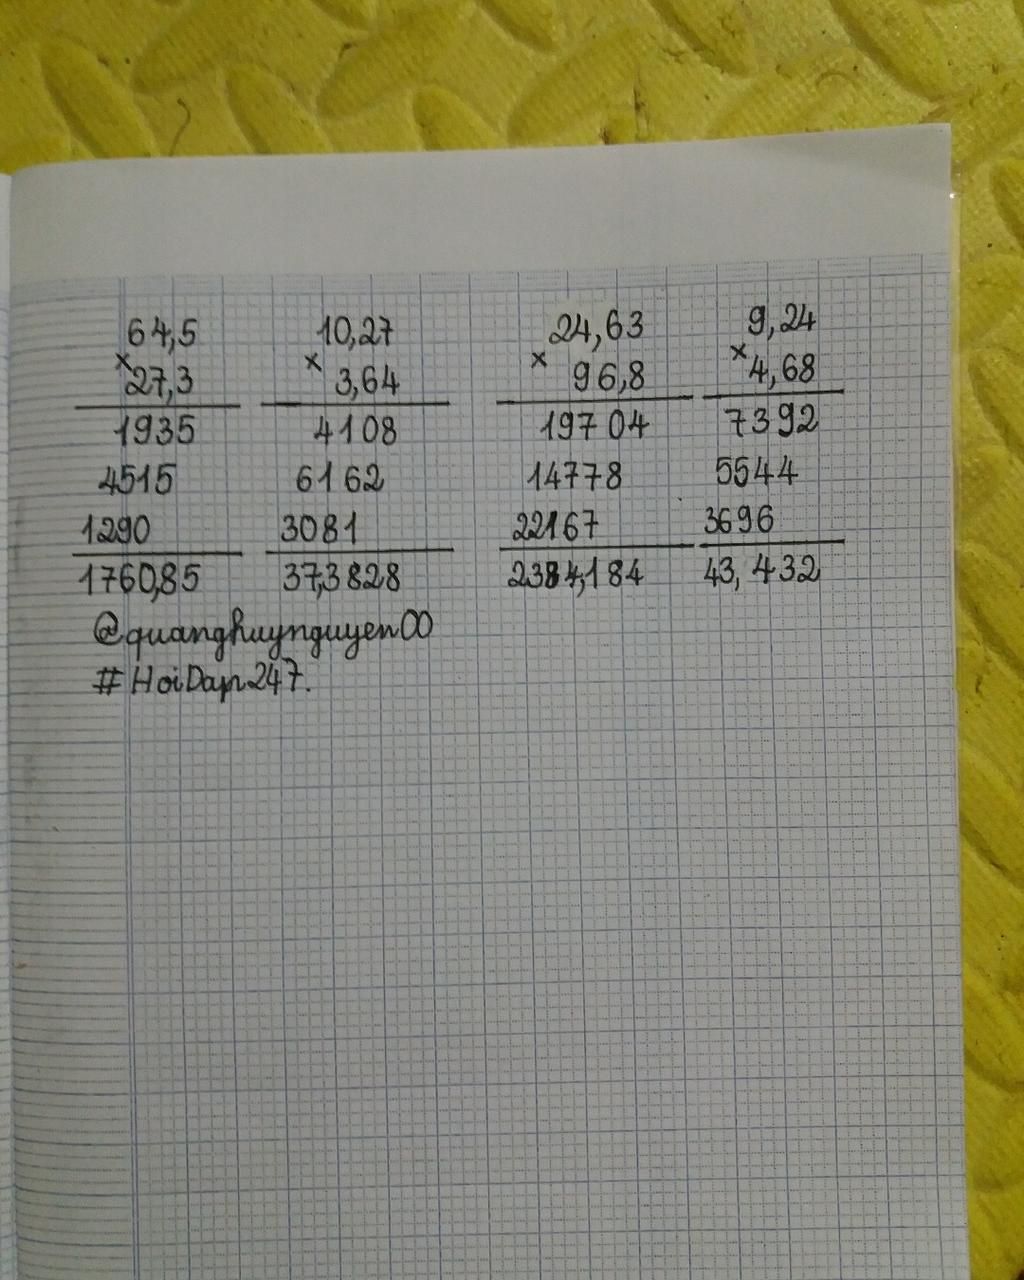 64,5 10,27 24,63 9,24
× 27,3 × 3,64 × 96,8 × 4,68
1935 4108 19704 7392
4515 6162 14778 5544
1290 3081 22167 3696
1760,85 37,3828 2384,184 43,432
@quanghuynguyen00
#HoiDap247.